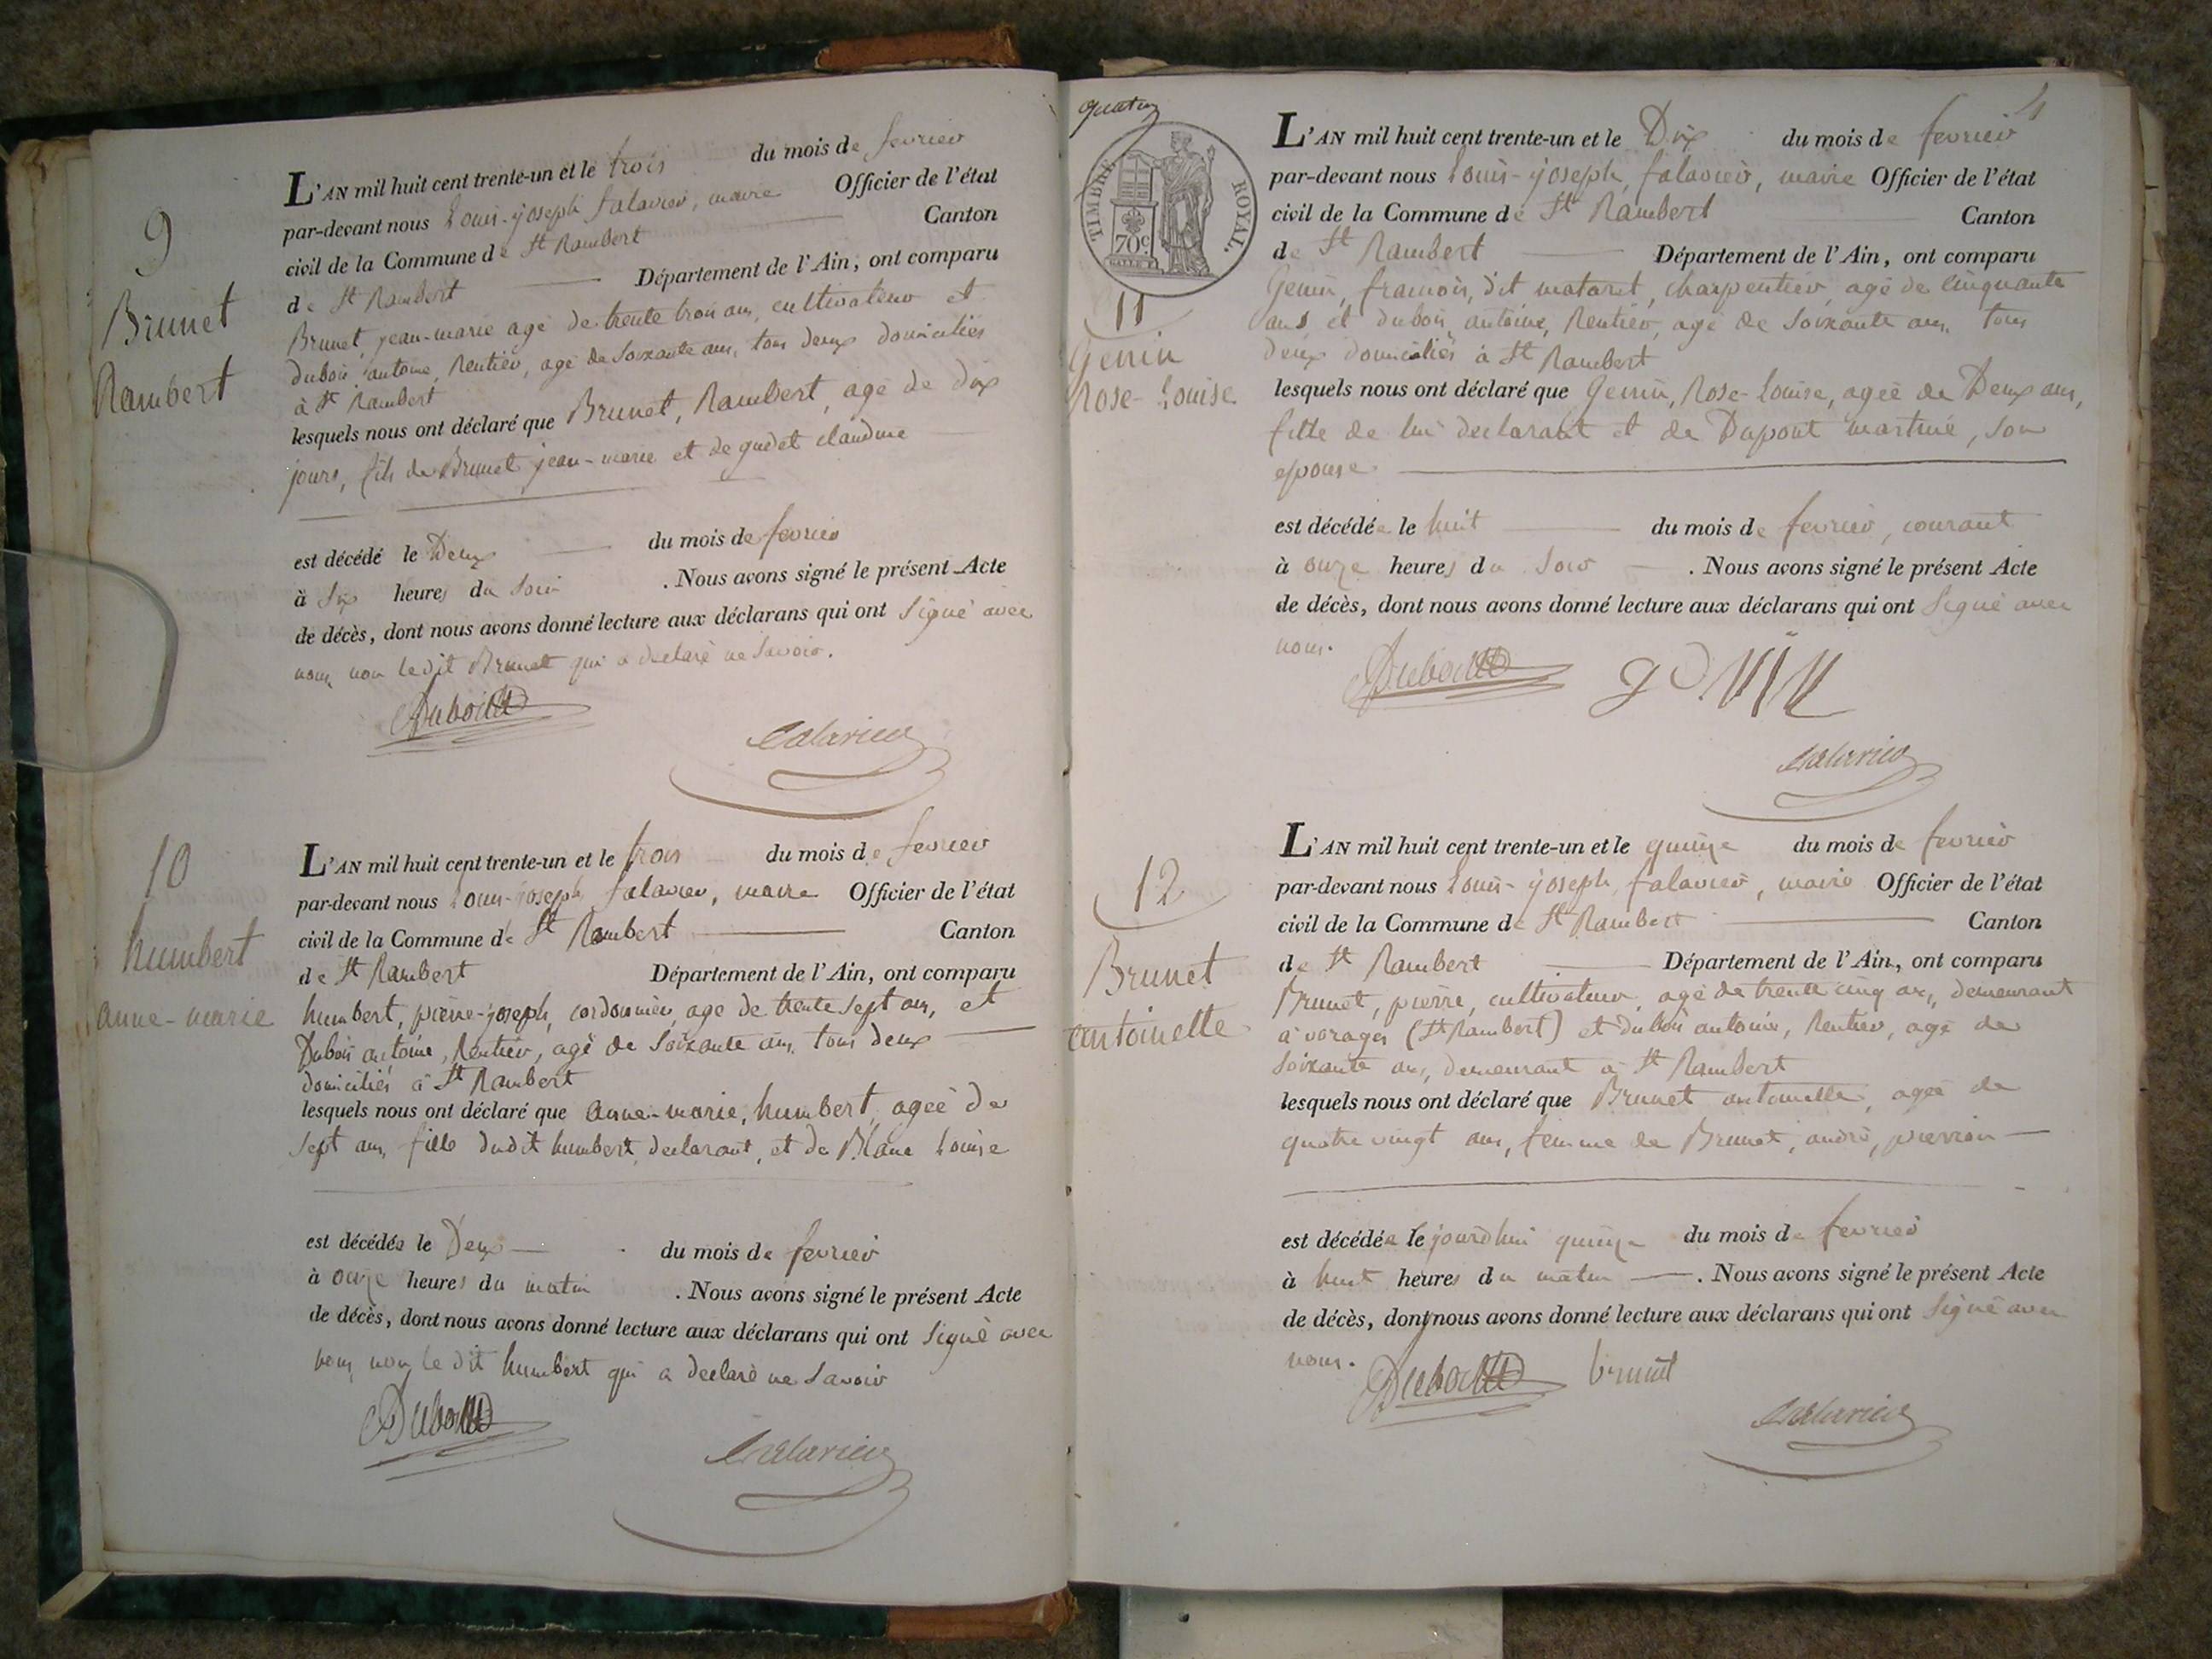 9
Brunet
Rambert
L'AN mil huit cent trente-un et le trois du mois de fevrier
par-devant nous Louis-joseph falavier, maire Officier de l'état
civil de la Commune de St Rambert Canton
de St Rambert Département de l'Ain, ont comparu
Brunet, jean-marie agé de trente trois ans, cultivateur et
dubois antoine, Rentier, agé de Soixante ans, tous deux domiciliés
à St Rambert
lesquels nous ont déclaré que Brunet, Rambert, agé de dix
jours, fils de Brunet jean-marie et de gudet claudine
est décédé le Deux du mois de fevrier
à Six heures du Soir . Nous avons signé le présent Acte
de décès, dont nous avons donné lecture aux déclarans qui ont Signé avec
nous, non ledit Brunet qui a declaré ne Savoir.
Dubois
falavier
10
humbert
anne-marie
L'AN mil huit cent trente-un et le trois du mois de fevrier
par-devant nous Louis-joseph falavier, maire Officier de l'état
civil de la Commune de St Rambert Canton
de St Rambert Département de l'Ain, ont comparu
humbert, pierre-joseph, cordonnier, agé de trente sept ans, et
Dubois antoine, Rentier, agé de Soixante ans, tous deux
domiciliés à St Rambert
lesquels nous ont déclaré que anne-marie, humbert, agée de
sept ans, fille dudit humbert, declarant, et de Blanc Louise
est décédée le Deux du mois de fevrier
à onze heures du matin . Nous avons signé le présent Acte
de décès, dont nous avons donné lecture aux déclarans qui ont Signé avec
nous, non le dit humbert qui a declaré ne Savoir
Dubois
falavier
quatre
4
TIMBRE ROYAL.
70c
11
Genin
Rose-Louise
L'AN mil huit cent trente-un et le Dix du mois de fevrier
par-devant nous Louis-joseph, falavier, maire Officier de l'état
civil de la Commune de St Rambert Canton
de St Rambert Département de l'Ain, ont comparu
Genin, francois, dit mataret, charpentier, agé de Cinquante
ans et dubois, antoine, Rentier, agé de Soixante ans, tous
deux domiciliés à St Rambert
lesquels nous ont déclaré que Genin, Rose-Louise, agée de Deux ans,
fille de lui declarant et de Dupont martine, son
epouse
est décédée le huit du mois de fevrier, courant
à onze heures du Soir . Nous avons signé le présent Acte
de décès, dont nous avons donné lecture aux déclarans qui ont Signé avec
nous.
Dubois genin
falavier
12
Brunet
antoinette
L'AN mil huit cent trente-un et le quinze du mois de fevrier
par-devant nous Louis-joseph, falavier, maire Officier de l'état
civil de la Commune de St Rambert Canton
de St Rambert Département de l'Ain, ont comparu
Brunet, pierre, cultivateur, agé de trente cinq ans, demeurant
à vorages (St Rambert) et dubois antoine, Rentier, agé de
Soixante ans, demeurant à St Rambert
lesquels nous ont déclaré que Brunet antoinette, agée de
quatre vingt ans, femme de Brunet, andré, pierrion
est décédée le jourdhui quinze du mois de fevrier
à huit heures du matin . Nous avons signé le présent Acte
de décès, dont nous avons donné lecture aux déclarans qui ont Signé avec
nous.
Dubois brunet
falavier